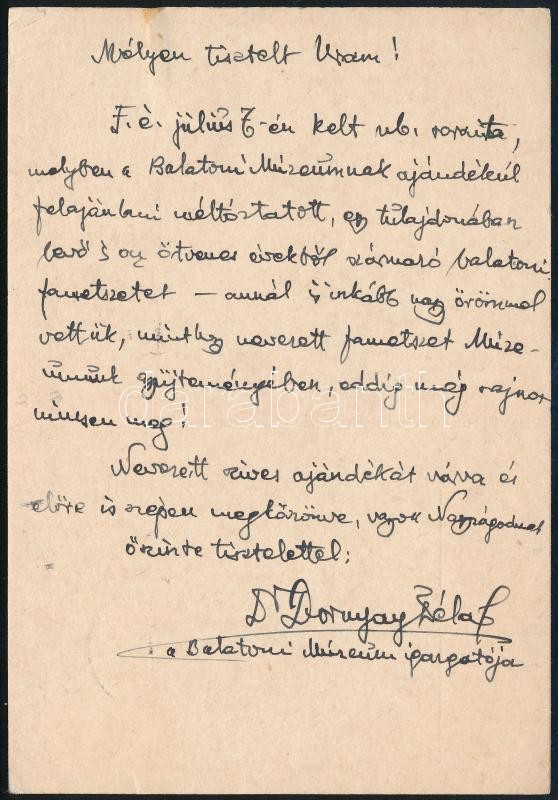 Mélyen tisztelt Uram!
F. é. július 7-én kelt nb. sorait,
melyben a Balatoni Múzeumnak ajándékúl
felajánlani méltóztatott, egy tulajdonában
levő s az ötvenes évekből származó balatoni
fametszetet — annál is inkább nagy örömmel
vettük, minthogy nevezett fametszet Múze-
umunk gyüjteményében, eddig még sajnos
nincsen meg!
darabanth
Nevezett szíves ajándékát várva és
előre is szépen megköszönve, vagyok Nagyságodnak
őszinte tisztelettel:
Dr Dornyay Béla
a Balatoni Múzeum igazgatója